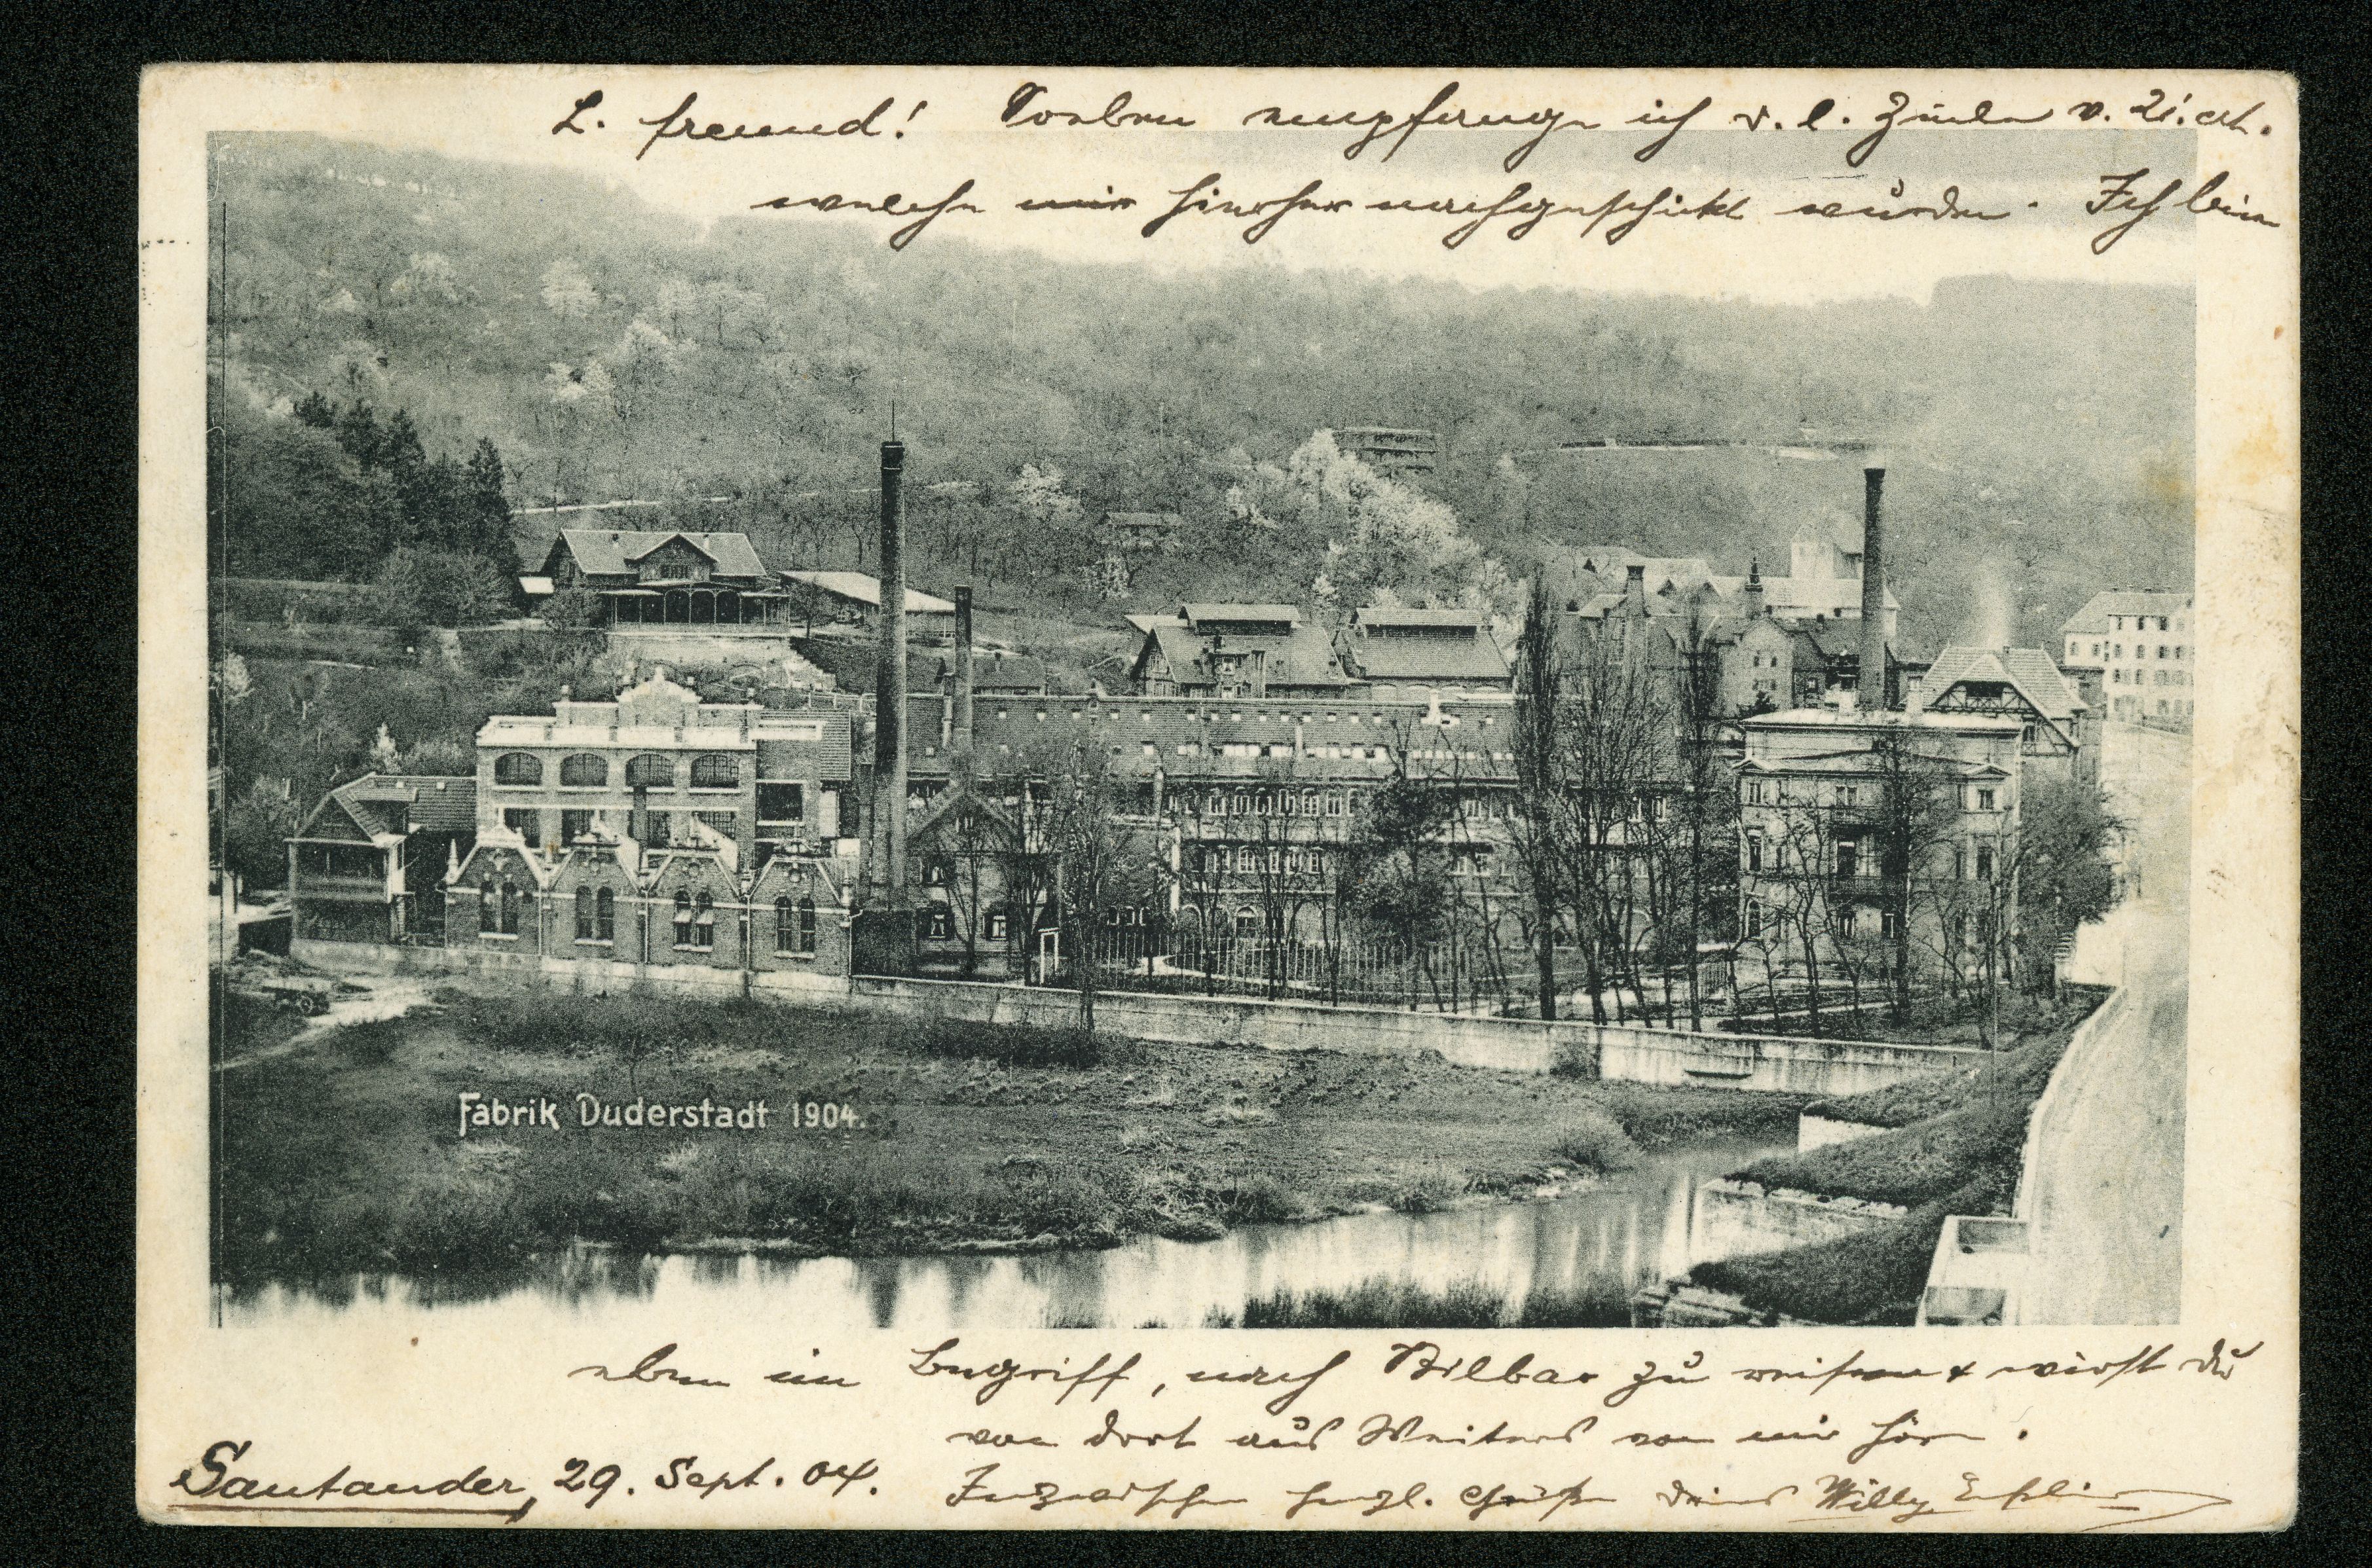 L. Freund! Soeben empfange ich d. l. Zeilen v. 21. crt.
welche mir hierher nachgeschickt wurden. Ich bin
Fabrik Duderstadt 1904.
eben im Begriff, nach Bilbao zu reisen & wirst Du
von dort aus Weiteres von mir hören.
Santander, 29. Sept. 04.
Inzwischen herzl. Grüße Deines Willy